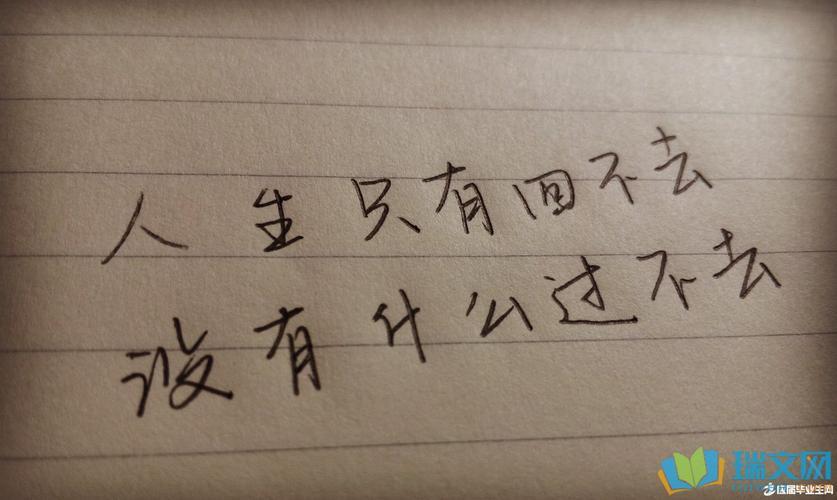 人生只有回不去
没有什么过不去
瑞文网
应届毕业生网